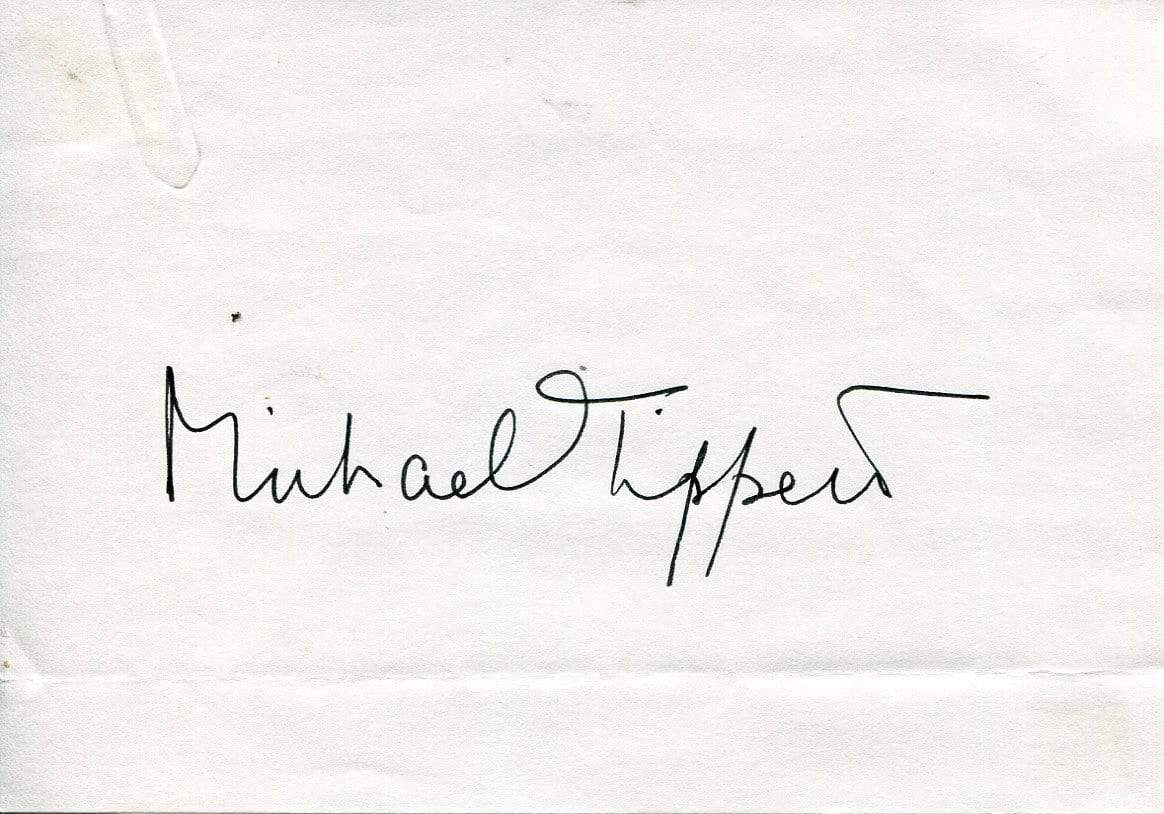 Michael Tippett